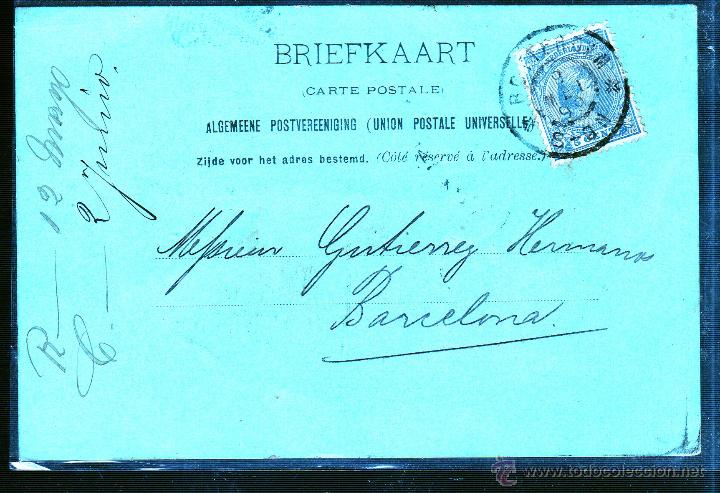 BRIEFKAART
(CARTE POSTALE)
ALGEMEENE POSTVEREENIGING (UNION POSTALE UNIVERSELLE)
Zijde voor het adres bestemd. (Côté réservé à l'adresse.)
Messieurs Gutierrez Hermanos
Barcelona.
R — 12 Mayo
C. — 2 Junio.
todocoleccion
www.todocoleccion.net